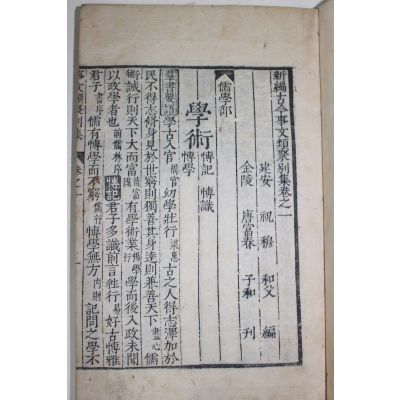 新編古今事文類聚別集卷之一
建安 祝穆 和父 編
金陵 唐富春 子和 刊
儒學部
學術
博記 博識
博學
羣書要語學古入官周官幼學壯行梁惠古之人得志澤加於
民不得志修身見於世窮則獨善其身達則兼善天下盡心儒
術誠行則天下大而富荀富有學術業行學而後入政未聞
以政學者也博記君子多識前言徃行易好古博雅
君子書序儒有博學而不窮儒行博學無方內則記問之學不
事文類聚別集 卷之一